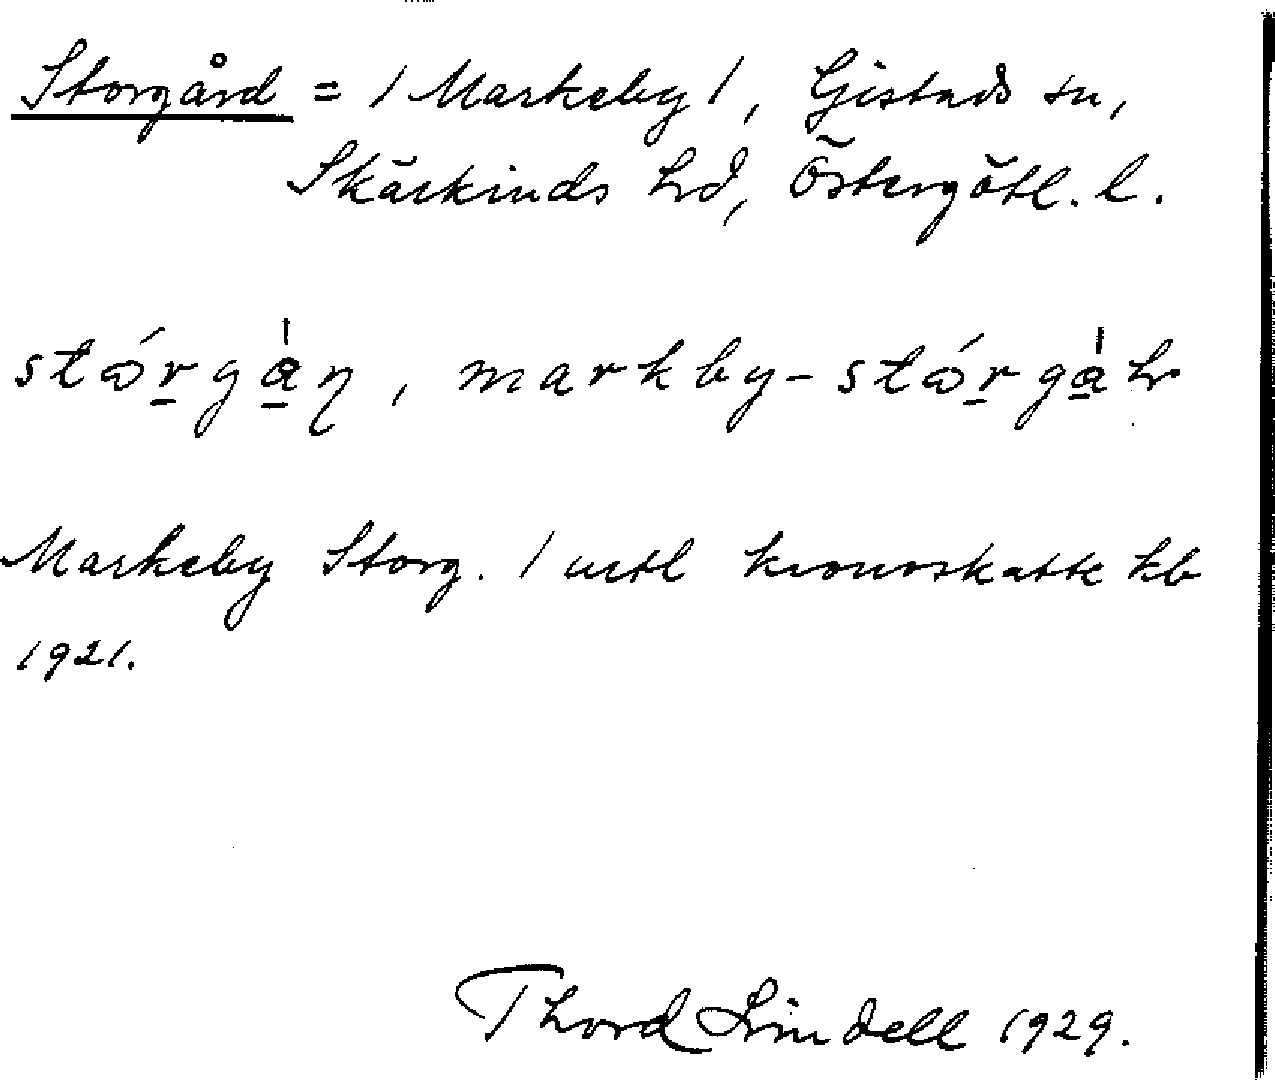 Storgård = / Markeby /, Gistads sn,
Skärkinds hd, Östergötl. l.
stǿrgàη, markby-stǿrgàh
Markeby Storg. 1 mtl kronoskatte kb
1921.
Thord Lindell 1929.